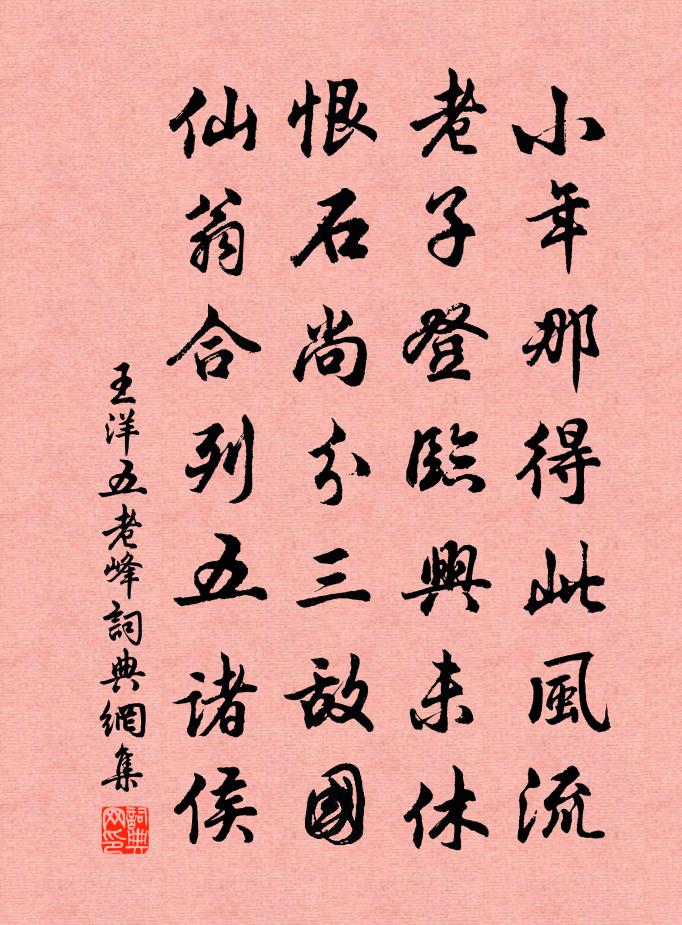 小年那得此風流
老子登臨興未休
恨石尚分三敌國
仙翁合列五诸侯
王洋五老峰詞典網集
詞典网印